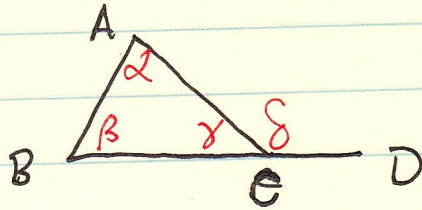 A
α
β γ δ
B C D